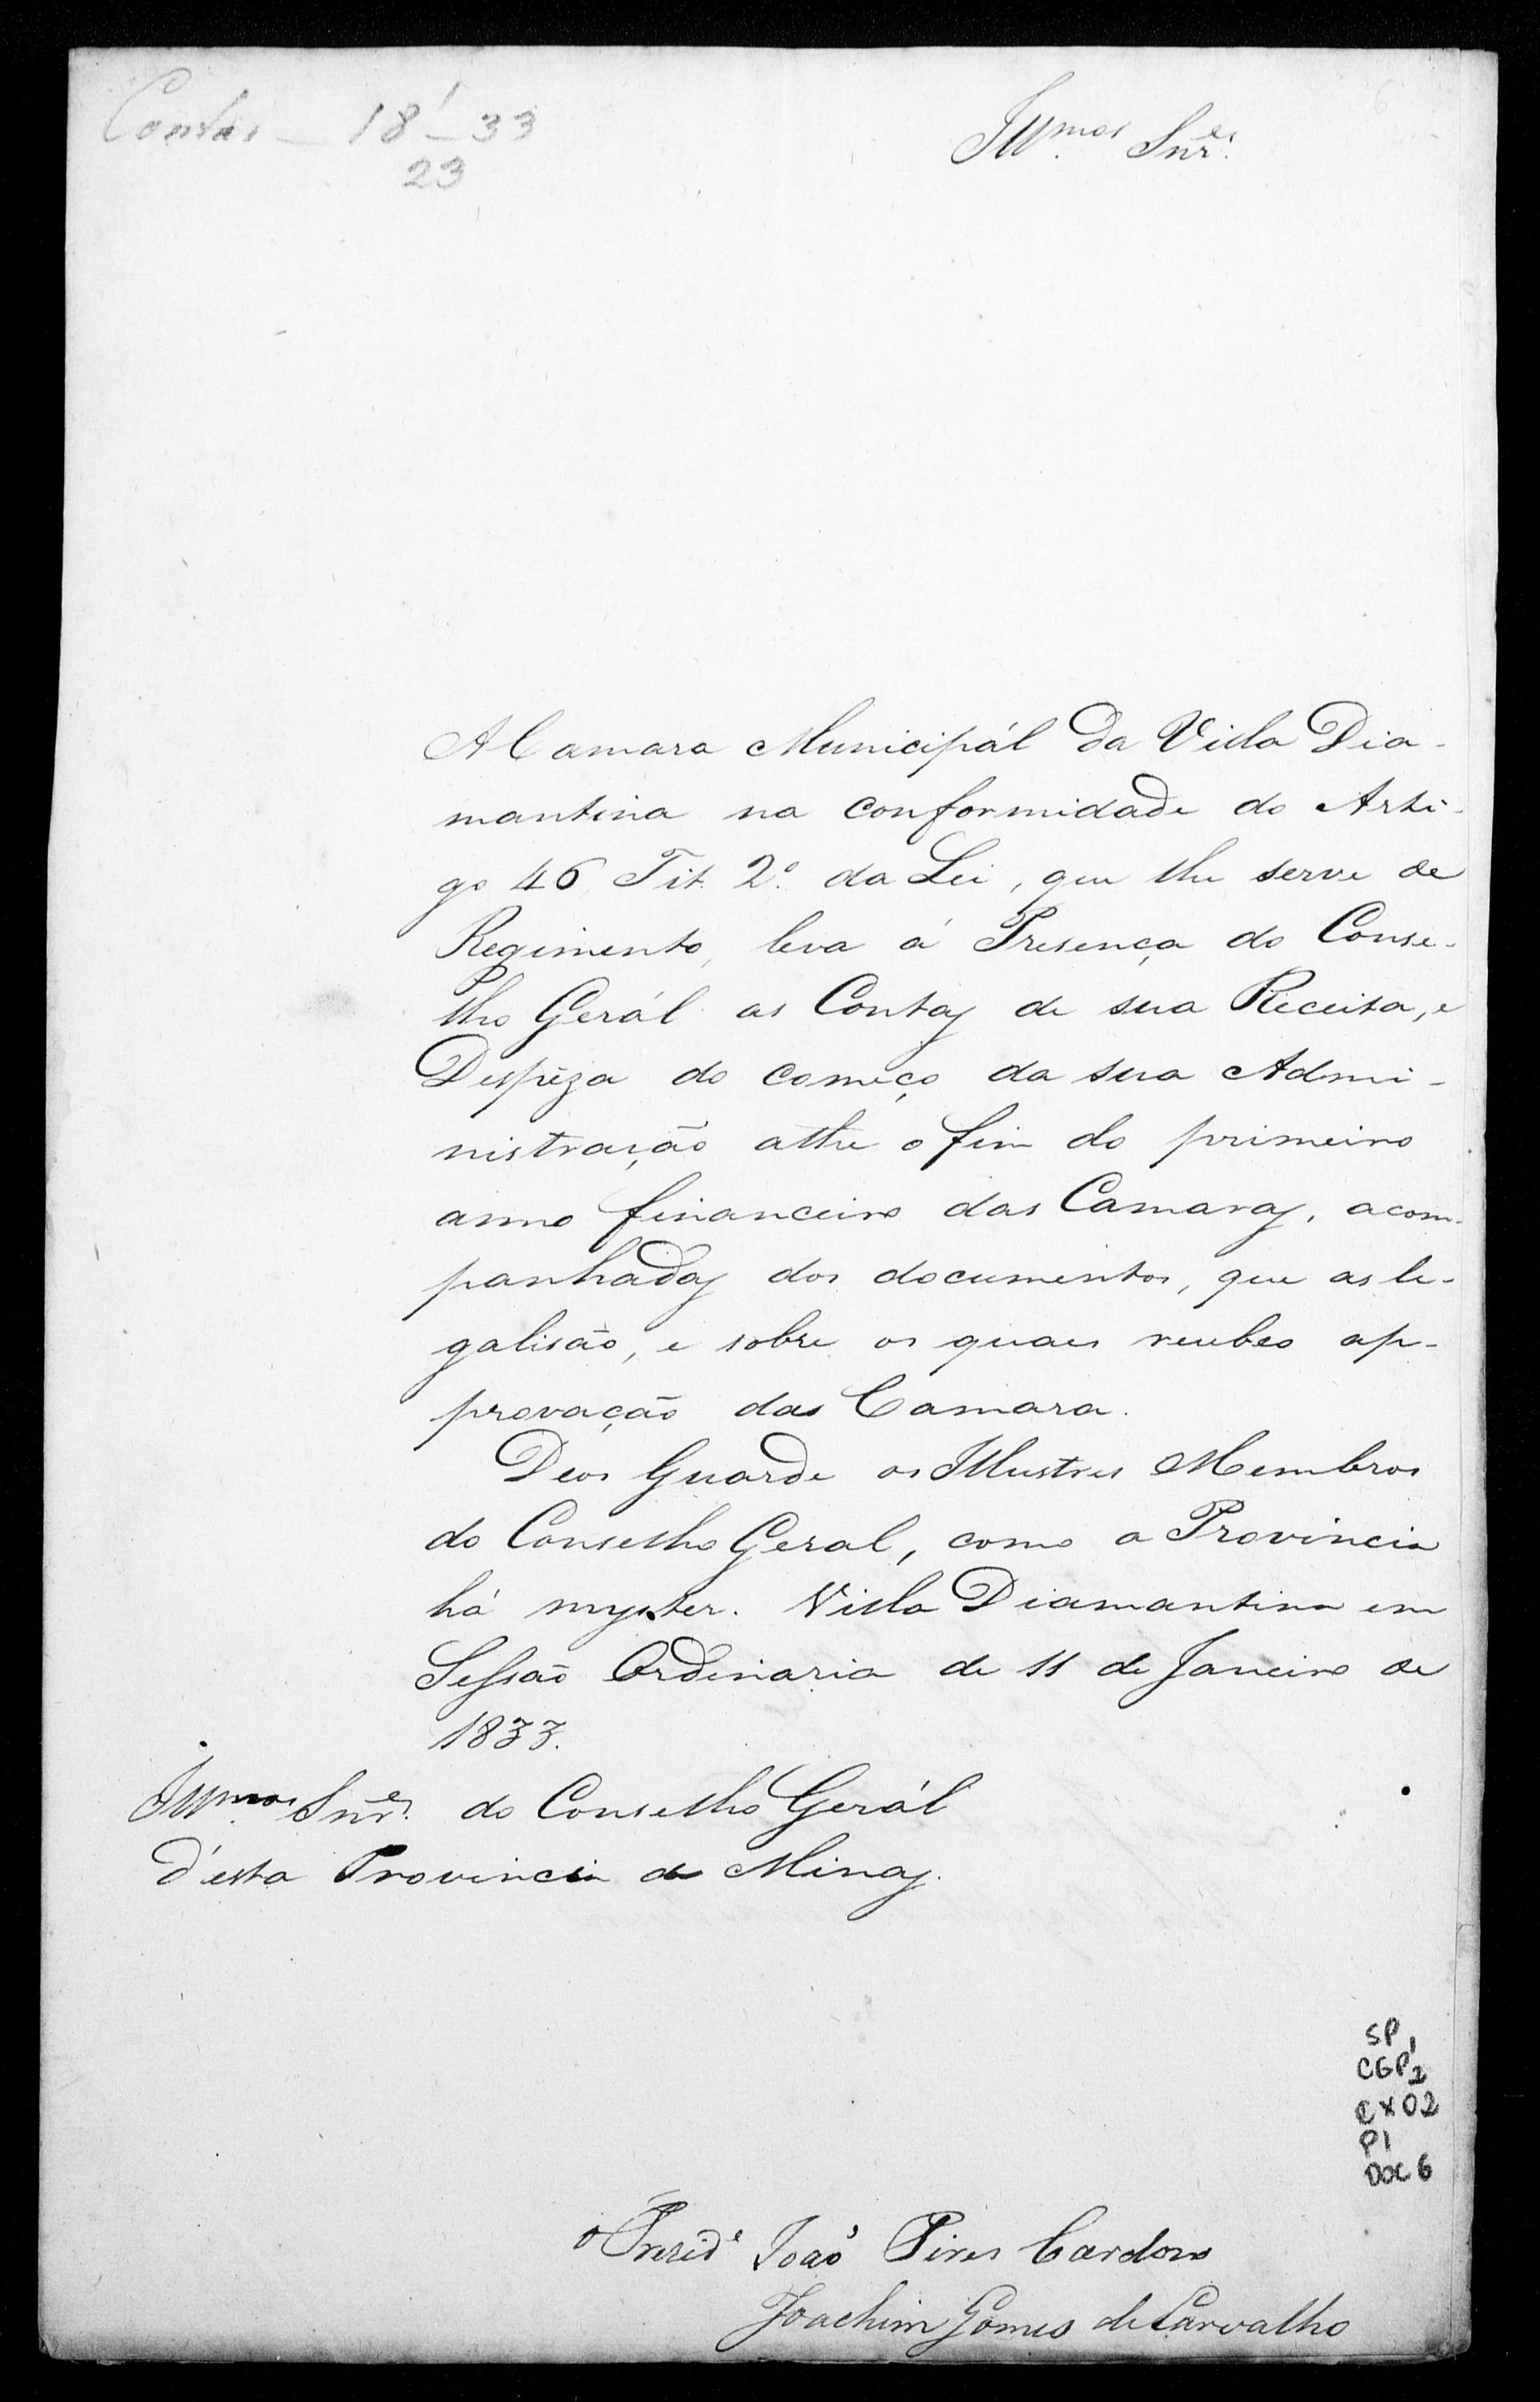 Contas — 18-1-33
23
Ill.mos Snr.es
A Camara Municipál da Villa Dia-
mantina na conformidade do Arti-
go 46 Tit. 2º. da Lei, que lhe serve de
Regimento, leva á Presença do Conse-
lho Gerál as Contas de sua Receita, e
Despêza do começo da sua Admi-
nistração athe o fim do primeiro
anno financeiro das Camaras, acom-
panhadas dos documentos, que as le-
galisão, e sobre os quaes recebeo ap-
provação das Camara.
Deos Guarde os Illustres Membros
do Conselho Geral, como a Provincia
há myster. Villa Diamantina em
Sessão Ordinaria de 11 de Janeiro de
1833.
Ill.mos Snr.es do Conselho Gerál
d'esta Provincia de Minas.
SP 1
CGP 1
CX 02
P1
DOC 6
o Prezid.e João Pires Cardoso
Joachim Gomes de Carvalho